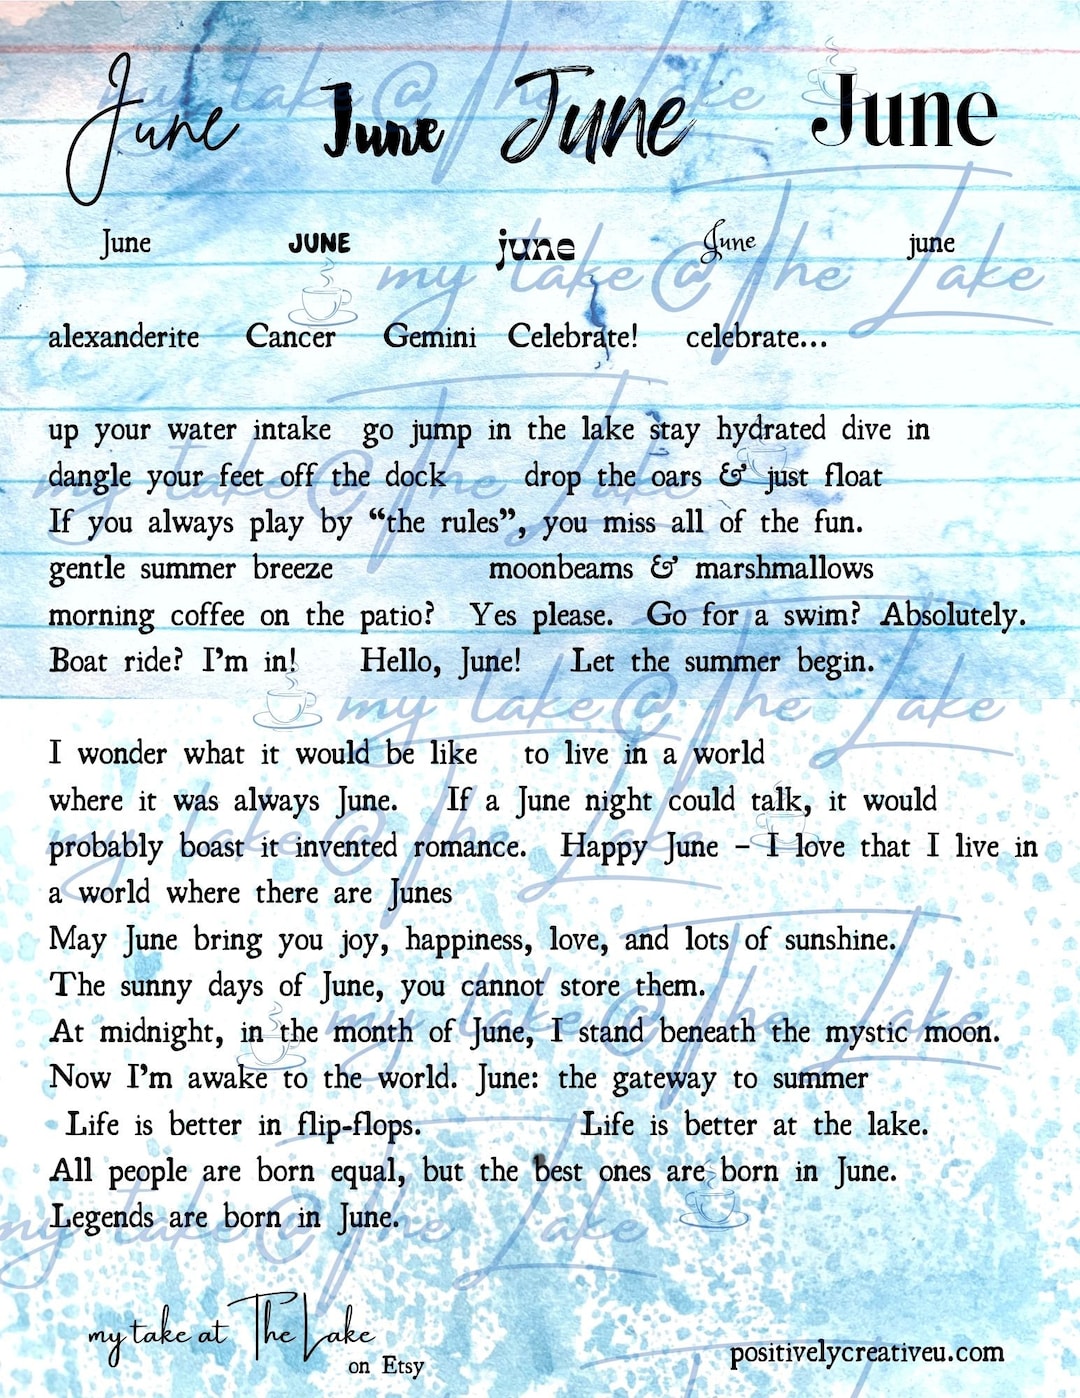 June June June June
June JUNE june June june
alexanderite Cancer Gemini Celebrate! celebrate...
up your water intake go jump in the lake stay hydrated dive in
dangle your feet off the dock drop the oars & just float
If you always play by “the rules”, you miss all of the fun.
gentle summer breeze moonbeams & marshmallows
morning coffee on the patio? Yes please. Go for a swim? Absolutely.
Boat ride? I'm in! Hello, June! Let the summer begin.
I wonder what it would be like to live in a world
where it was always June. If a June night could talk, it would
probably boast it invented romance. Happy June – I love that I live in
a world where there are Junes
May June bring you joy, happiness, love, and lots of sunshine.
The sunny days of June, you cannot store them.
At midnight, in the month of June, I stand beneath the mystic moon.
Now I'm awake to the world. June: the gateway to summer
Life is better in flip-flops. Life is better at the lake.
All people are born equal, but the best ones are born in June.
Legends are born in June.
my take at The Lake
on Etsy
positivelycreativeu.com
my take @ The Lake
my take @ The Lake
my take @ The Lake
my take @ The Lake
my take @ The Lake
my take @ The Lake
my take @ The Lake